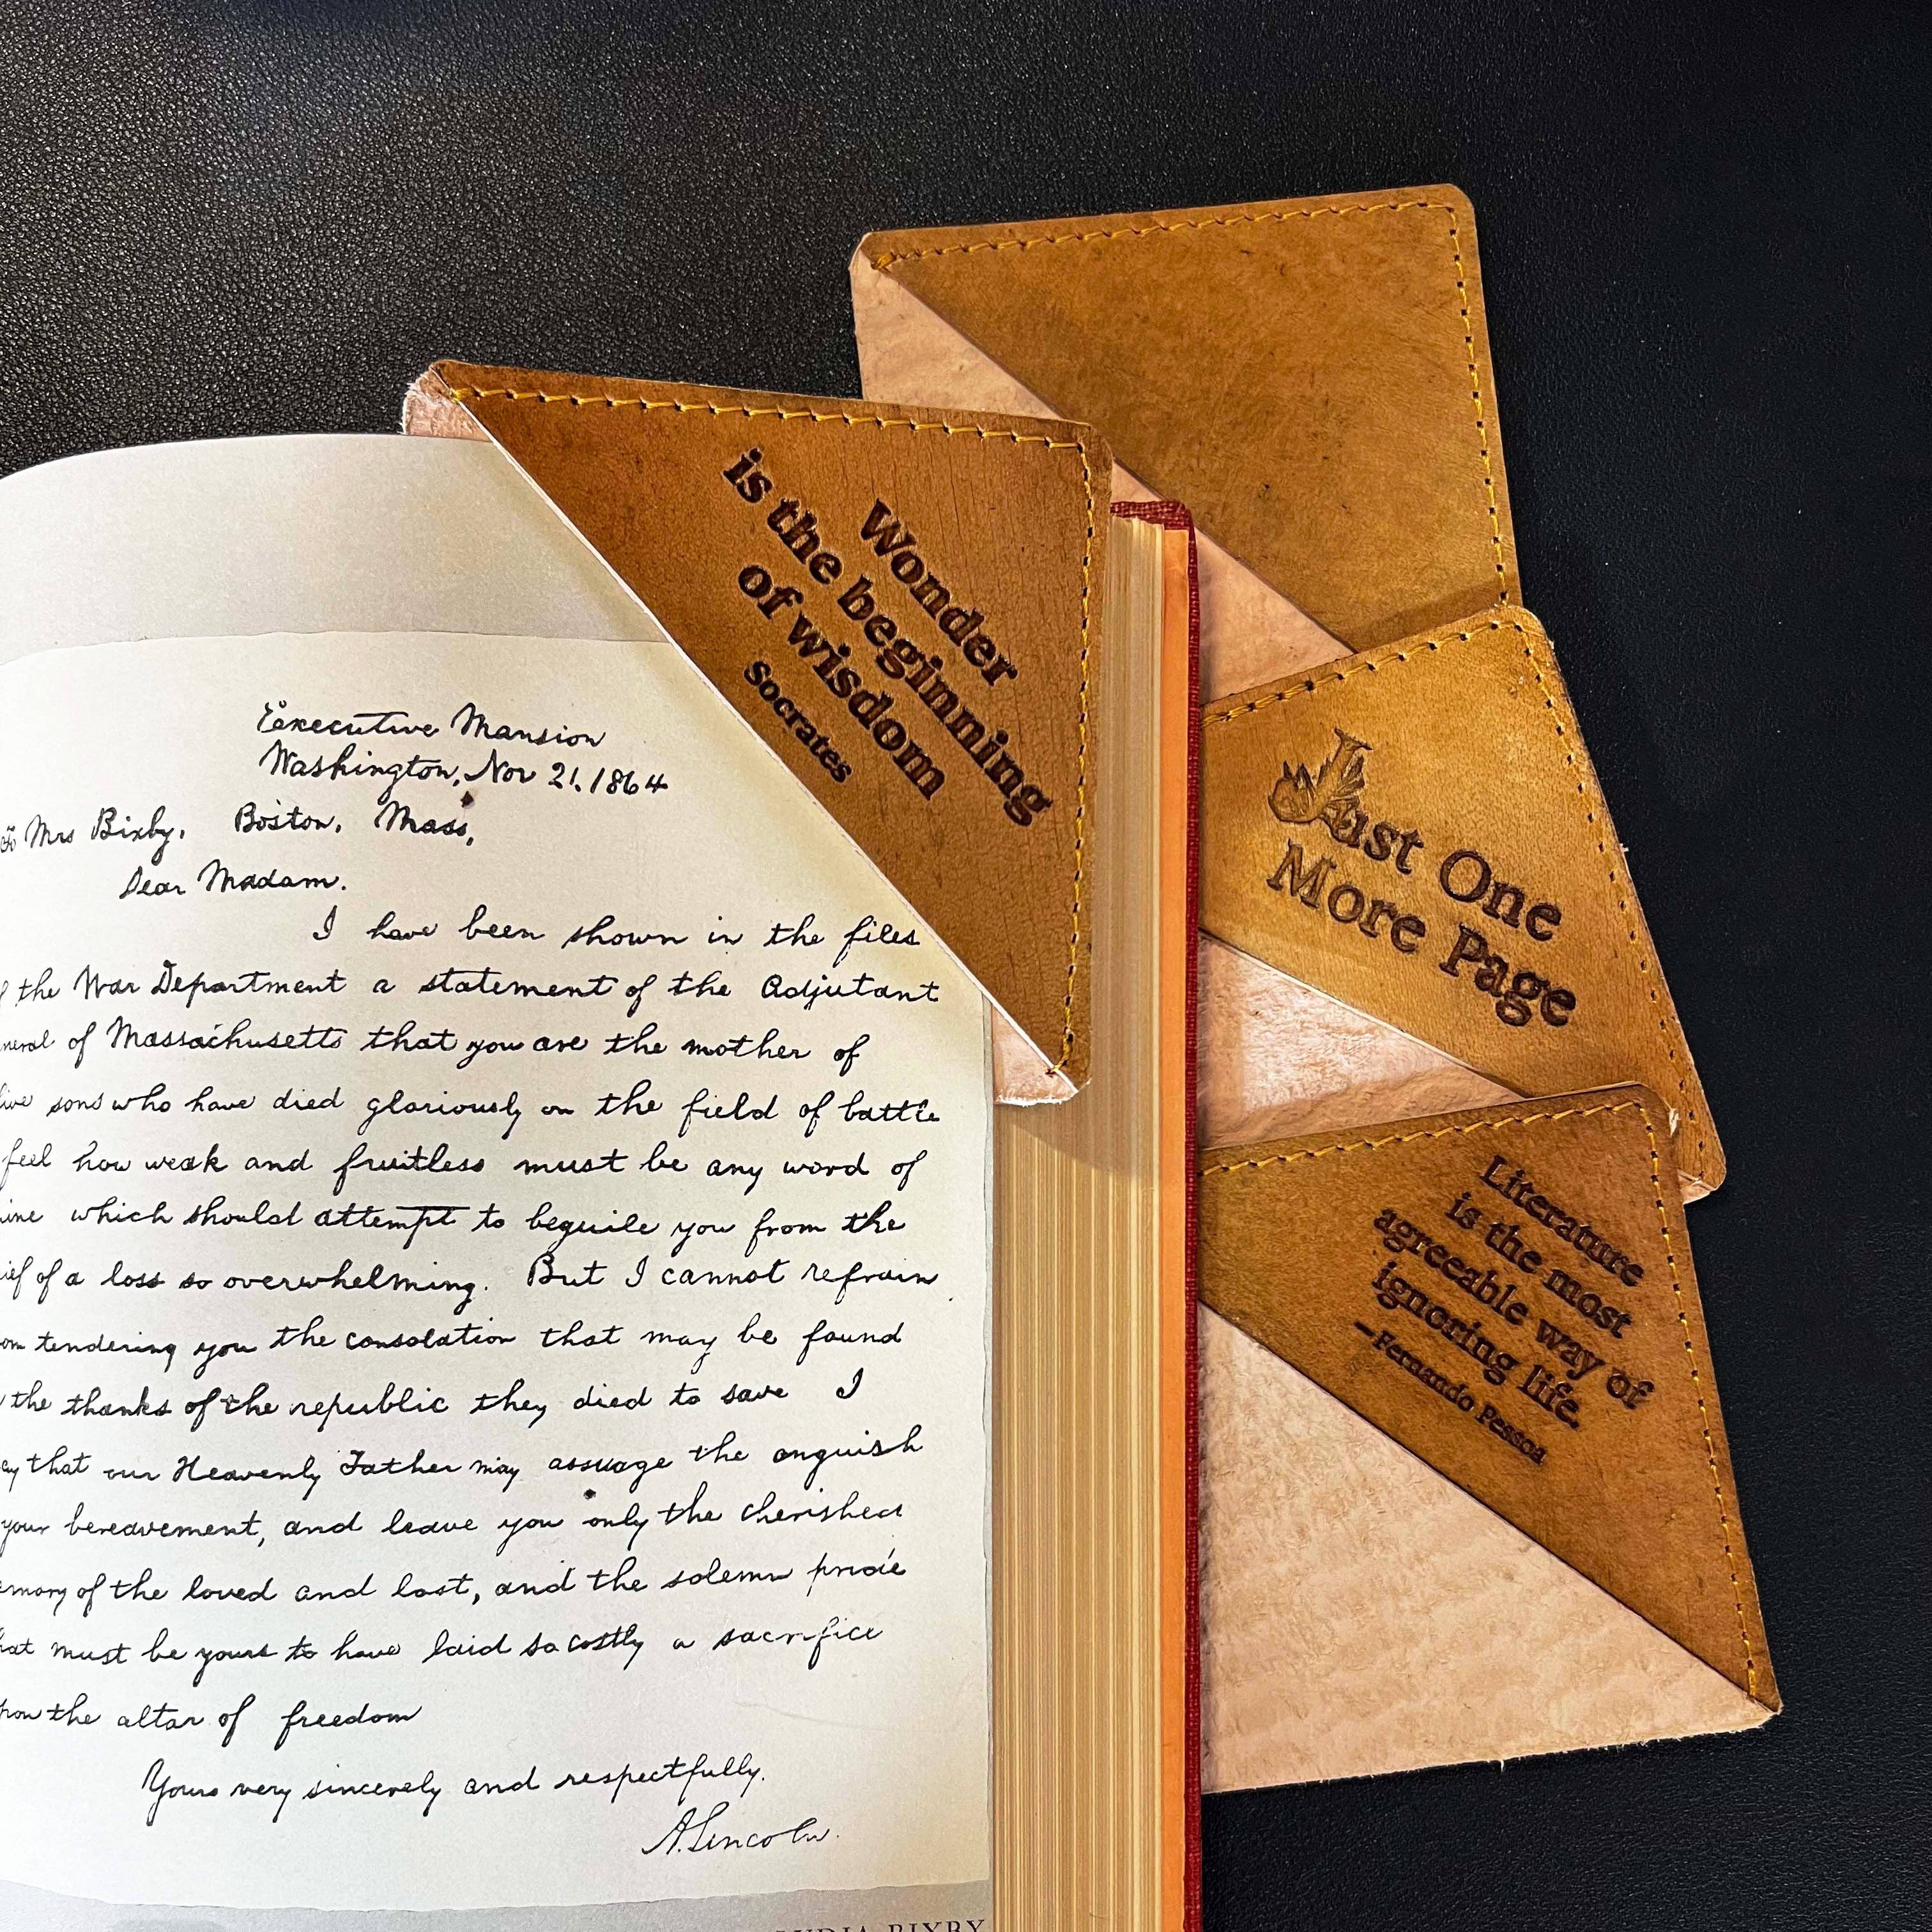 Executive Mansion
Washington, Nov 21, 1864
To Mrs Bixby, Boston, Mass,
Dear Madam.
I have been shown in the files
the War Department a statement of the Adjutant
of Massachusetts that you are the mother of
sons who have died gloriously on the field of battle
feel how weak and fruitless must be any word of
which should attempt to beguile you from the
of a loss so overwhelming. But I cannot refrain
tendering you the consolation that may be found
the thanks of the republic they died to save I
that our Heavenly Father may assuage the anguish
your bereavement, and leave you only the cherished
of the loved and lost, and the solemn pride
must be yours to have laid so costly a sacrifice
the altar of freedom
Yours very sincerely and respectfully.
A. Lincoln.
LYDIA BIXBY
Wonder
is the beginning
of wisdom
Socrates
Just One
More Page
Literature
is the most
agreeable way of
ignoring life.
—Fernando Pessoa